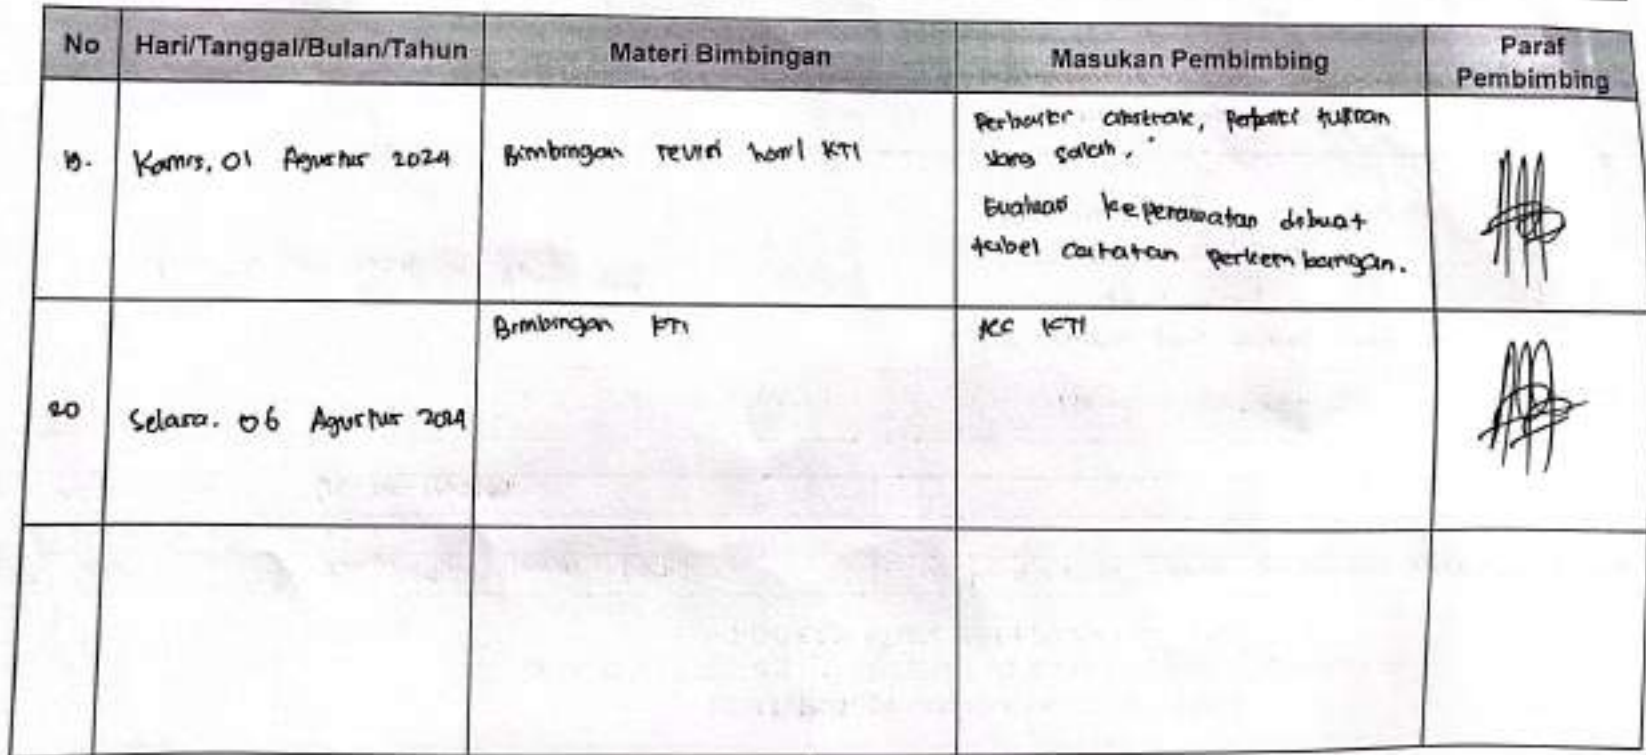 No Hari/Tanggal/Bulan/Tahun Materi Bimbingan Masukan Pembimbing Paraf Pembimbing
19. Kamis, 01 Agustus 2024 Bimbingan revisi hasil KTI Perbaiki abstrak, Perbaiki tulisan
yang salah.
Evaluasi keperawatan dibuat
tabel catatan perkembangan.
Bimbingan KTI ACC KTI
20 Selasa. 06 Agustus 2024